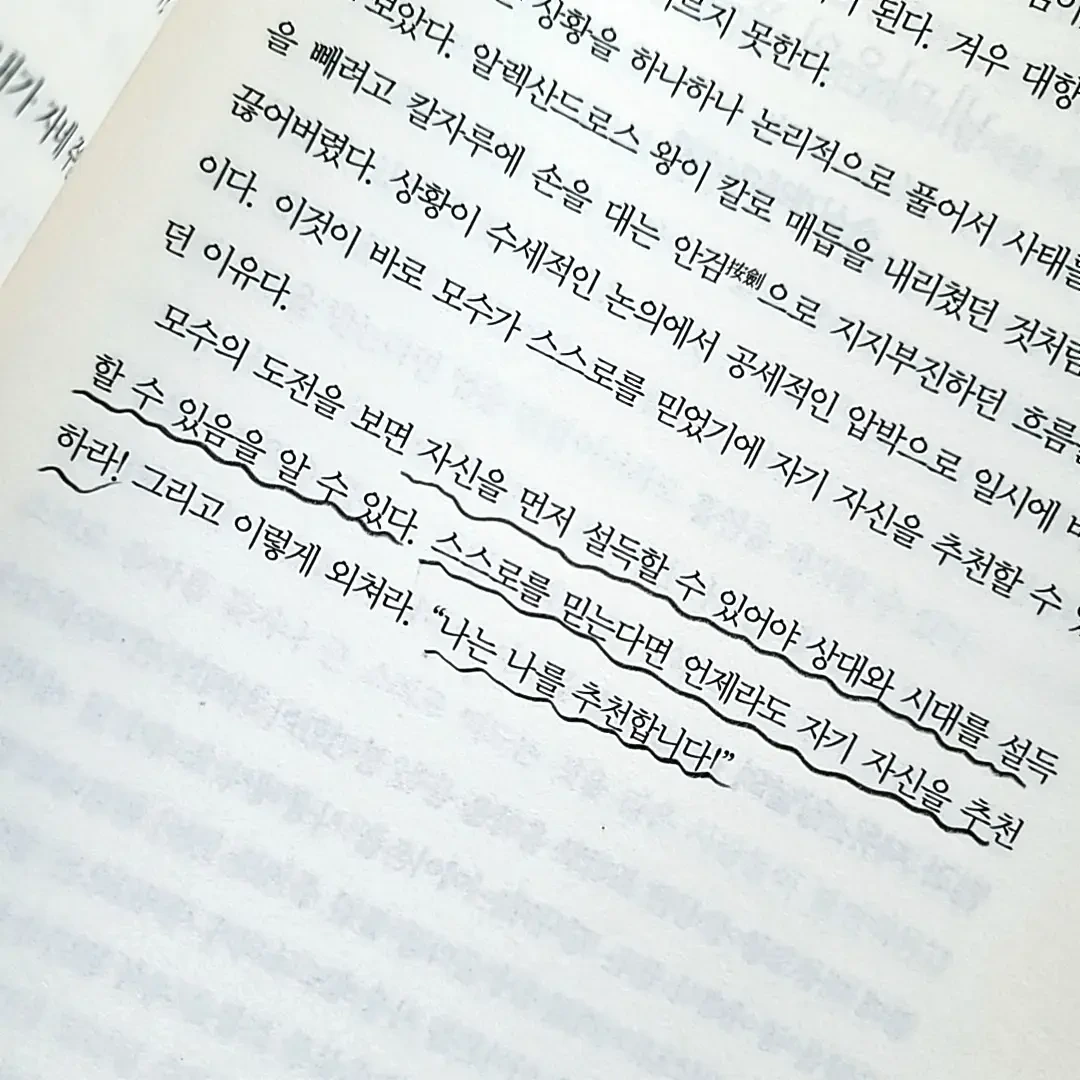 된다. 겨우 대항
르지 못한다.
상황을 하나하나 논리적으로 풀어서 사태를
보았다. 알렉산드로스 왕이 칼로 매듭을 내리쳤던 것처럼
을 빼려고 칼자루에 손을 대는 안검按劍으로 지지부진하던 흐름을
끊어버렸다. 상황이 수세적인 논의에서 공세적인 압박으로 일시에
이다. 이것이 바로 모수가 스스로를 믿었기에 자기 자신을 추천할 수
던 이유다.
모수의 도전을 보면 자신을 먼저 설득할 수 있어야 상대와 시대를 설득
할 수 있음을 알 수 있다. 스스로를 믿는다면 언제라도 자기 자신을 추천
하라! 그리고 이렇게 외쳐라. “나는 나를 추천합니다!”